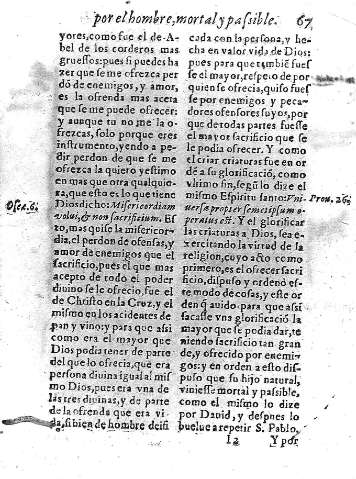 por el hombre, mortal y passible. 67
yores, como fue el de A-
bel de los corderos mas
gruessos: pues si puedes ha
zer que se me ofrezca per
dõ de enemigos, y amor,
es la ofrenda mas aceta
que se me puede ofrecer:
y aunque tu no me la o-
frezcas, solo porque eres
instrumento, yendo a pe-
dir perdon de que se me
ofrezca la quiero y estimo
en mas que otra qualquie-
ra, que esto es lo que tiene
Osee. 6. Dios dicho: Misericordiam
volui, & non sacrificium. Es
to, mas quiso la misericor-
dia, el perdon de ofensas, y
amor de enemigos que el
sacrificio, pues el que mas
acepto de todo el poder
divino se le ofrecio, fue el
de Christo en la Cruz, y el
mismo en los accidentes de
pan y vino: y para que assi
como era el mayor que
Dios podia tener de parte
del que lo ofrecia, que era
persona divina igual al mis
mo Dios, pues era vna de
las tres divinas, y de parte
de la ofrenda que era vi-
da, si bien de hombre deifi
cada con la persona, y he-
cha en valor vida de Dios:
pues para que tambiẽ fues
se el mayor, respeto de por
quien se ofrecia, quiso fues
se por enemigos y peca-
dores ofensores suyos, por
que de todas partes fuesse
el mayor sacrificio que se
le podia ofrecer. Y como
el criar criaturas fue en or
dẽ a su glorificaciõ, como
vltimo fin, segũ lo dize el
mismo Espiritu santo: Vni Prou. 26.
uersa propter semetipsum o-
peratus est. Y el glorificar
las criaturas a Dios, sea e-
xercitando la virtud de la
religion, cuyo acto como
primero, es el ofrecer sacri
ficio, dispuso y ordenó es-
te modo de cosas, y este or
den q̃ auido para que assi
sacasse vna glorificació la
mayor que se podia dar, te
niendo sacrificio tan gran
de, y ofrecido por enemi-
gos: y en orden a esto dis-
puso que su hijo natural,
viniesse mortal y passible,
como el mismo lo dize
por Dauid, y despues lo
buelue a repetir S. Pablo,
I2 Y por